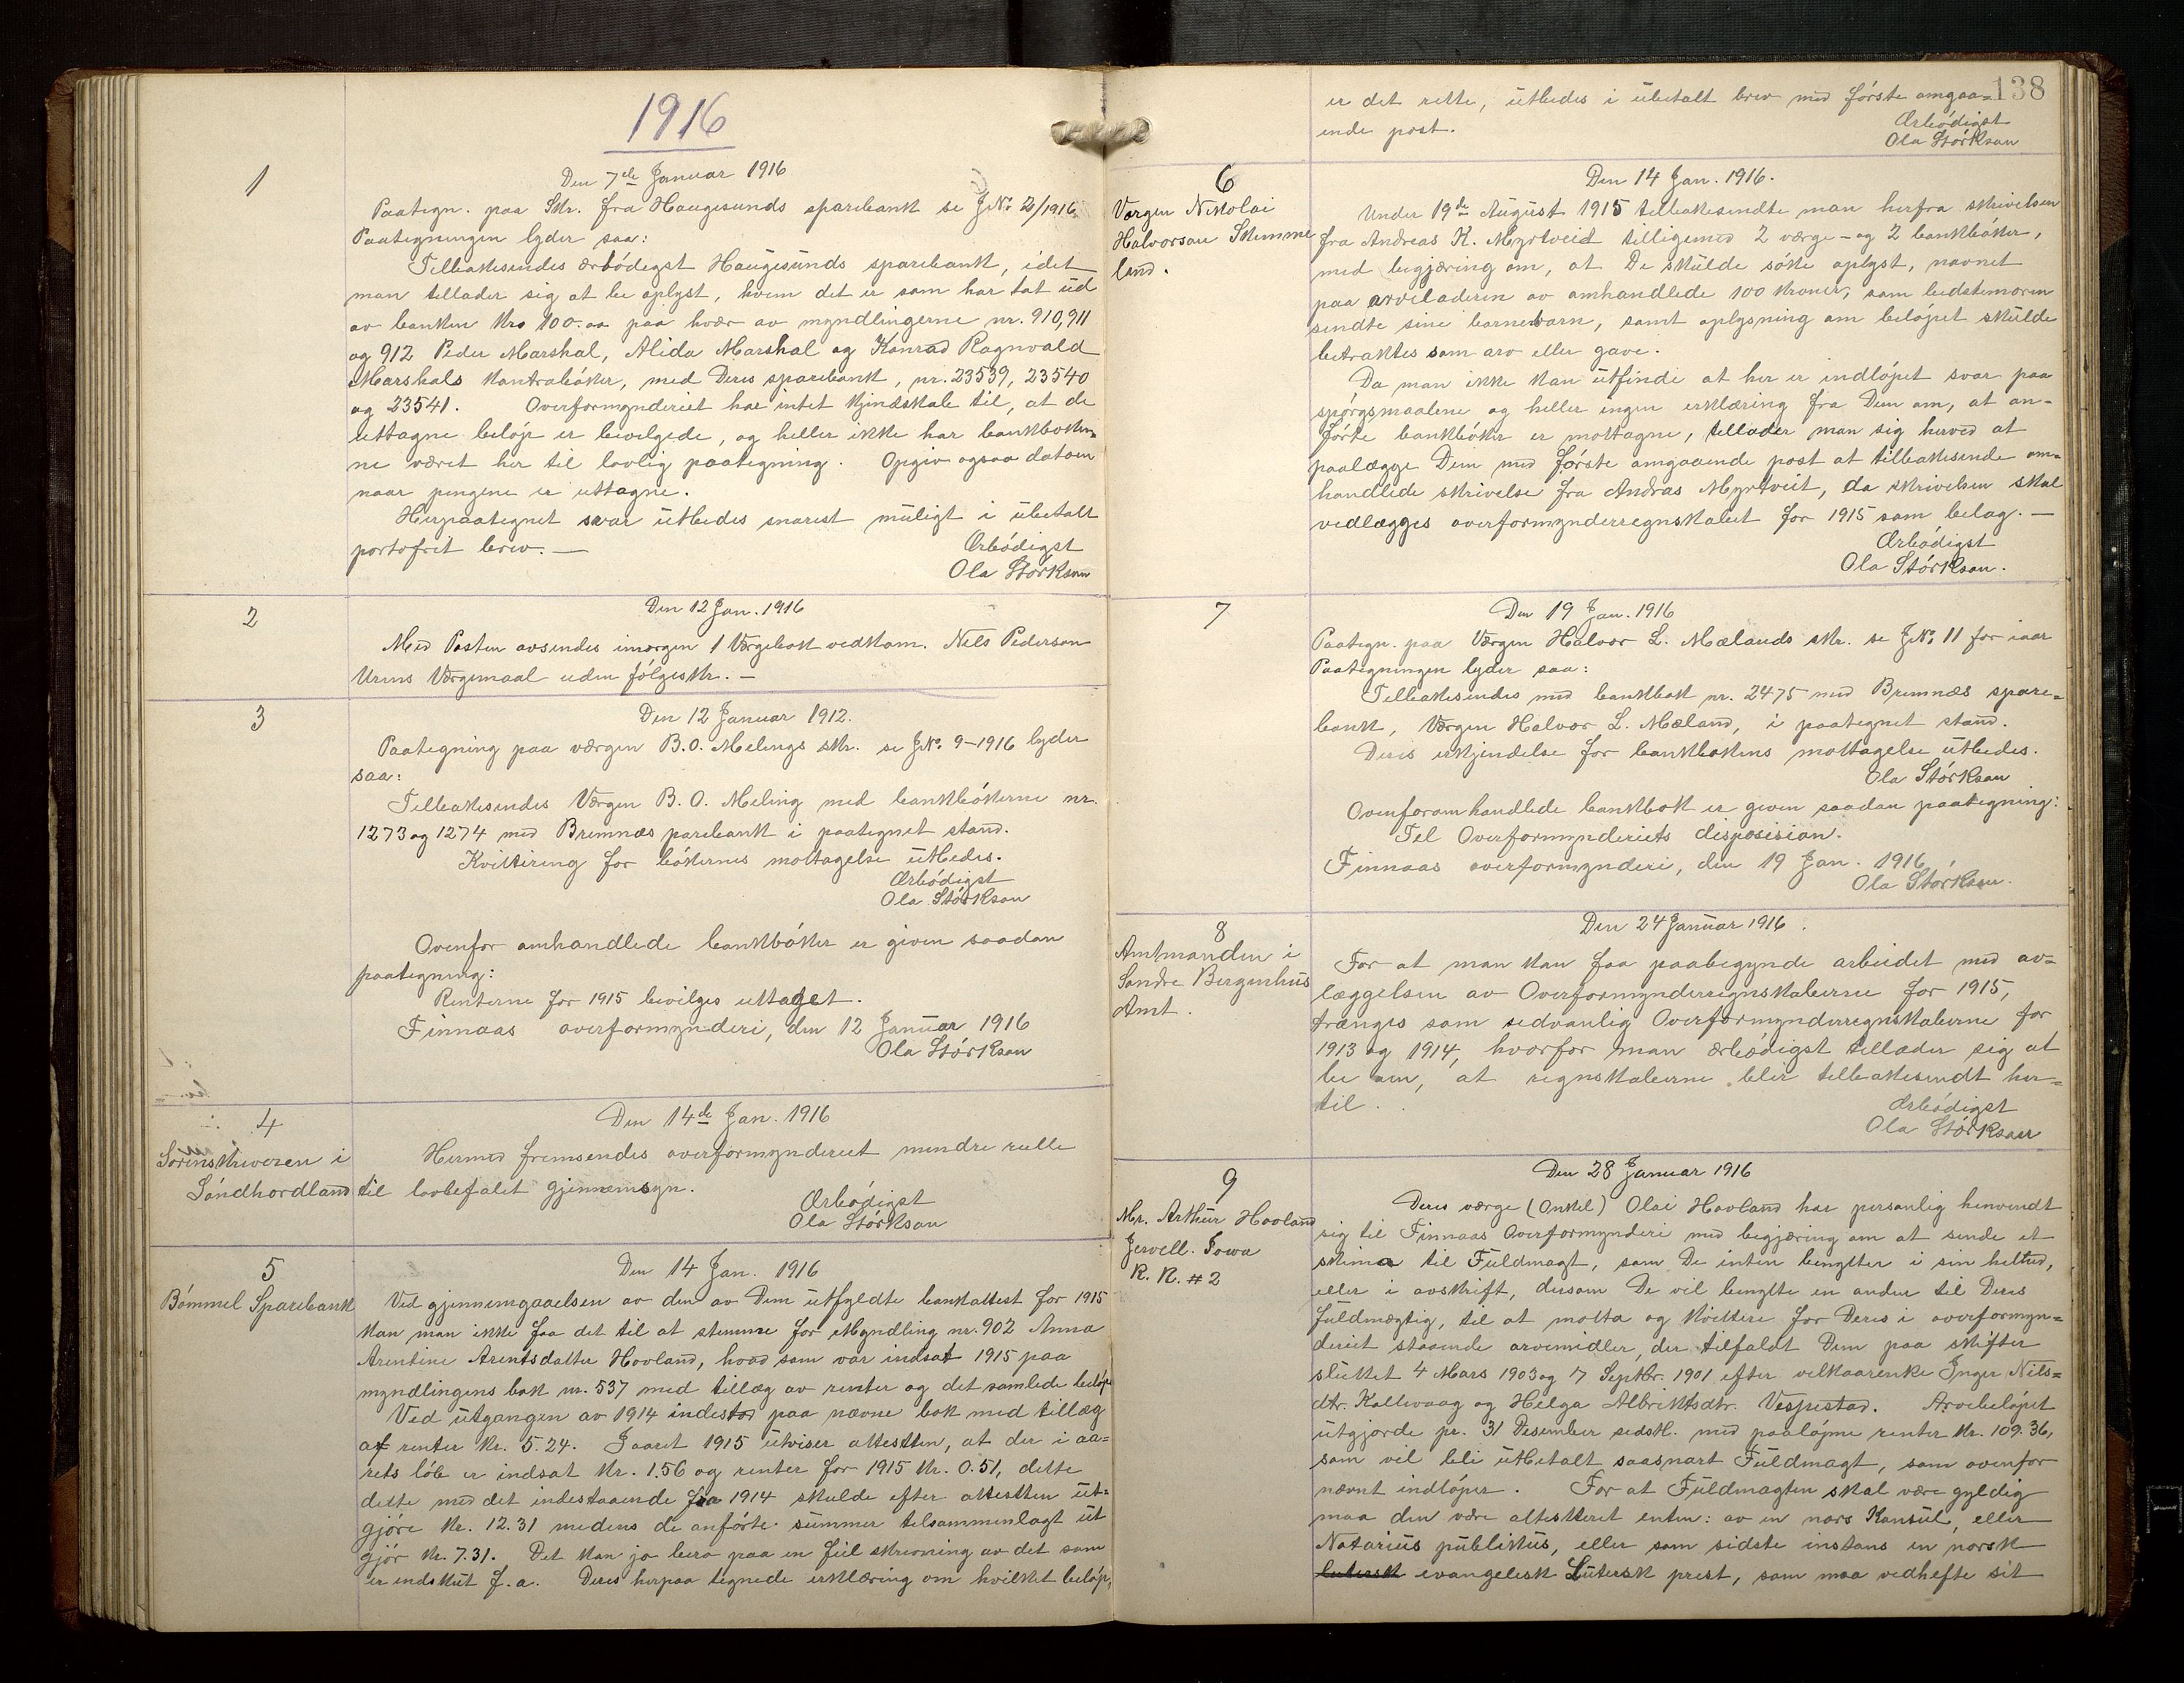 1916
1
Den 7de Januar 1916
Paategn. paa Skr. fra Haugesunds sparebank se J№ 2/1916
Paategningen lyder saa:
Tilbakesendes ærbödigst Haugesunds sparebank, idet
man tillader sig at be oplyst, hvem det er som har tat ud
av banken Kro 100.00 paa hvær av myndlingerne nr. 910, 911
og 912 Peder Marshal, Alida Marshal og Konrad Ragnvald
Marshals Kontrabóker, med Deres sparebank, nr. 23539, 23540
og 23541. Overformynderiet har intet kjendskab til, at de
uttagne belöp er bevilgede, og heller ikke har bankboken-
ne været her til lovlig paategning. Opgiv ogsaa datoen
naar pengene er uttagne.
Herpaategnet svar utbedes snarest muligt i ubetalt
portofrit brev. —
Ærbödigst
Ola Störkson
2
Den 12 Jan. 1916
Med Posten avsendes imorgen 1 Værgebok vedkom. Nels Pederson
Urens Værgemaal uden fölgeskr. —
3
Den 12 Januar 1912.
Paategning paa værgen B.O. Melings skr. se J№ 9-1916 lyder
saa:
Tilbakesendes Værgen B. O. Meling med bankbökerne nr.
1273 og 1274 med Bremnæs parebank i paategnet stand.
Kvittering for bökernes mottagelse utbedes.
Ærbödigst
Ola Störkson
Ovenfor omhandlede bankböker er given saadan
paategning:
Renterne for 1915 bevilges uttaget.
Finnaas overformynderi, den 12 Januar 1916
Ola Störkson
4
Sorenskriveren i
Söndhordland
Den 14de Jan. 1916
Hermed fremsendes overformynderiet mindre rulle
til lovbefalet gjennemsyn.
Ærbödigst
Ola Störkson
5
Bömmel Sparebank
Den 14 Jan. 1916
Ved gjennemgaaelsen av den av Dem utfyldte bankattest for 1915
kan man ikke faa det til at stemme for Myndling nr. 902 Anna
Arentine Arentsdatter Hovland, hvad som var indsat 1915 paa
myndlingens bok nr. 537 med tillæg av renter og det samlede belöp
Ved utgangen av 1914 indestod paa nævne bok med tillæg
af renter Kr. 5.24. I aaret 1915 utviser attestten, at der i aa-
rets löb er indsat Kr. 1.56 og renter for 1915 Kr. 0.51, dette
dette med det indestaaende fra 1914 skulde efter attestten ut-
gjöre Kr. 12.31 medens de anförte summer tilsammenlagt ut
gjör Kr. 7.31. Det kan jo bero paa en feil skrivning av det som
er indskut f.a. Deres herpaa tegnede erklæring om hvilket belöp,
138
er det rette, utbedes i ubetalt brev med förste omgaa-
ende post.
Ærbödigst
Ola Störkson
6
Værgen Nikolai
Halvorson Skimme
land.
Den 14 Jan. 1916.
Under 19de August 1915 tilbakesendte man herfra skrivelsen
fra Andreas K. Myrtveid tilligemed 2 værge- og 2 bankböker,
med begjæring om, at De skulde söke oplyst, navnet
paa arveladeren av omhandlede 100 kroner, som bedstemoren
sendte sine barnebarn, samt oplysning om belöpet skulde
betraktes som arv eller gave.
Da man ikke kan utfinde at her er indlöpet svar paa
spörgsmaalene og heller ingen erklæring fra Dem om, at an-
förte bankböker er mottagne, tillader man sig herved at
paalægge Dem med förste omgaaende post at tilbakesende om-
handlede skrivelse fra Andras Myrtveit, da skrivelsen skal
vedlægges overformynderregnskabet for 1915 som belag. —
Ærbödigst
Ola Störkson.
7
Den 19 Jan. 1916
Paategn. paa Værgen Halvor L. Mælands skr. se J№ 11 for iaar
Paategningen lyder saa:
Tilbakesendes med bankbok nr. 2475 med Bremnæs spare-
bank, Værgen Halvor L. Mæland, i paategnet stand.
Deres erkjendelse for bankbokens mottagelse utbedes.
Ola Störkson
Ovenforomhandlede bankbok er given saadan paategning:
Til Overformynderiets disposision.
Finnaas overformynderi, den 19 Jan. 1916
Ola Störkson.
8
Amtmanden i
Söndre Bergenhus
Amt.
Den 24 Januar 1916.
For at man kan faa paabegynde arbeidet med av-
læggelsen av Overformynderregnskaberne for 1915,
trænges som sedvanlig Overformynderregnskaberne for
1913 og 1914, hvorfor man ærbödigst tillader sig at
be om, at regnskaberne blir tilbakesendt her-
til.
Ærbödigst
Ola Störkson
9
Mr. Arthur Hovland
Jewell. Iowa
R. R. #2
Den 28 Januar 1916
Deres værge (Onkel) Olai Hovland har personlig henvendt
sig til Finnaas Overformynderi med begjæring om at sende et
skima til Fuldmagt, som De inten benytter i sin helhed,
eller i avskrift, dersom De vil benytte en anden til Deres
fuldmægtig, til at motta og kvittere for Deres i overformyn-
deriet staaende arvemidler, der tilfaldt Dem paa skifter
sluttet 4 Mars 1903 og 7 Septbr. 1901 efter velkaarenke Inger Nils-
dtr. Kallevaag og Helga Albriktsdtr. Vespestad. Arvebelöpet
utgjorde pr. 31 Desember sidstl. med paalöpne renter Kr. 109.36,
som vil bli utbetalt saasnart Fuldmagt, som ovenfor
nævnt indlöper. For at Fuldmagten skal være gyldig
maa den være attestteret enten: av en nors Konsul, eller
Notarius publikus, eller som sidste instans en norsk
lutersk evangelisk Lutersk prest, som maa vedhefte sit